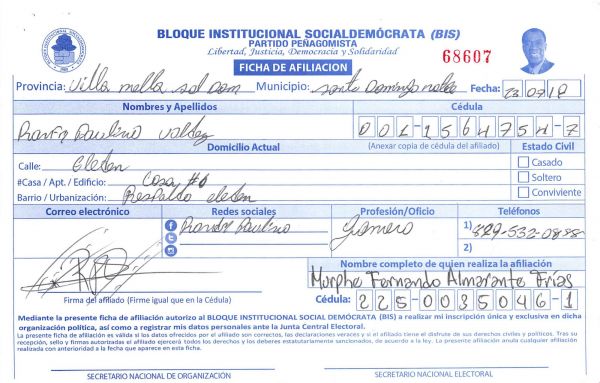 BLOQUE INSTITUCIONAL SOCIALDEMÓCRATA (BIS)
PARTIDO PEÑAGOMISTA
Libertad, Justicia, Democracia y Solidaridad
68607
FICHA DE AFILIACION
Provincia: Villa mella sto Dom Municipio: santo Domingo norte Fecha: 23 07 18
Nombres y Apellidos Cédula
Paulino Valdez 001-1564754-7
Domicilio Actual (Anexar copia de cédula del afiliado) Estado Civil
Calle: El eden Casado
#Casa / Apt. / Edificio: Casa #6 Soltero
Barrio / Urbanización: Respaldo el eden Conviviente
Correo electrónico Redes sociales Profesión/Oficio Teléfonos
Paulino 1) 829-532-0888
2)
Nombre completo de quien realiza la afiliación
Murphe Fernando Almarante Frías
Firma del afiliado (Firme igual que en la Cédula) Cédula: 225-0035046-1
Mediante la presente firma de afiliación autorizo al BLOQUE INSTITUCIONAL SOCIAL DEMÓCRATA (BIS) a realizar mi inscripción única y exclusiva en dicha
organización política, así como a registrar mis datos personales ante la Junta Central Electoral.
La presente ficha de afiliación es válida si los datos ofrecidos por el afiliado son correctos, las declaraciones veraces y si el afiliado tiene el disfrute de sus derechos civiles y políticos. Tras su
recepción, sello y firmas autorizadas el afiliado ejercerá todos los derechos y los deberes estatutariamente sancionados, de acuerdo a la ley. La presente afiliación anula cualquier afiliación
realizada con anterioridad a la fecha que aparece en esta ficha.
SECRETARIO NACIONAL DE ORGANIZACIÓN SECRETARIO NACIONAL ELECTORAL